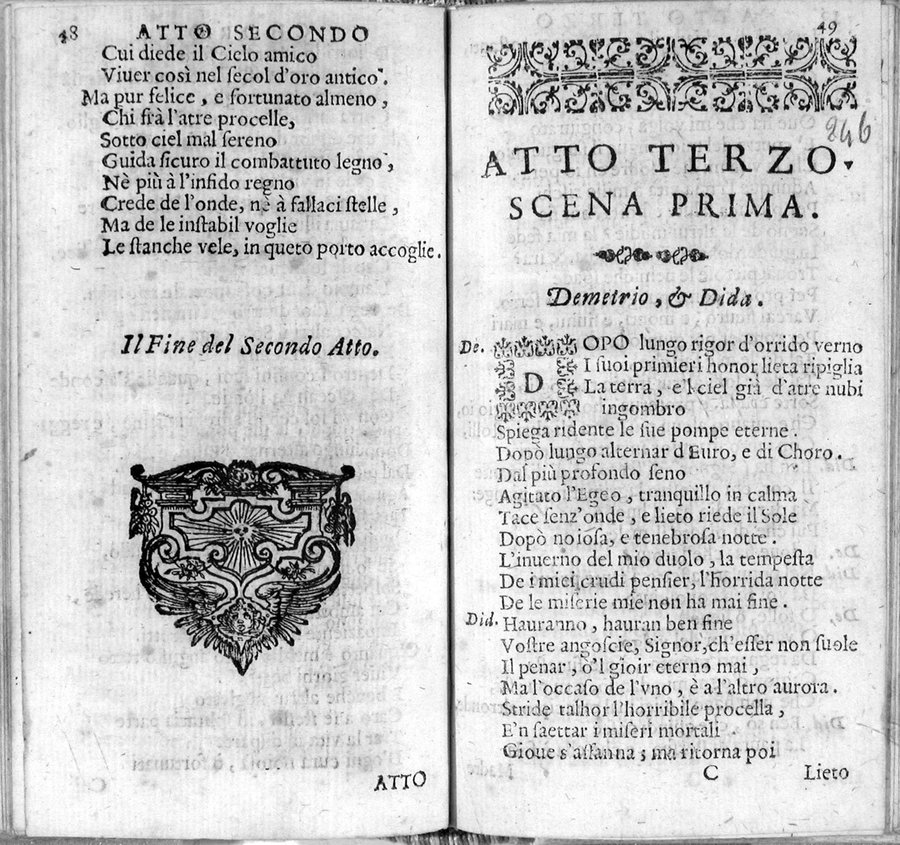 48 ATTO SECONDO
Cui diede il Cielo amico
Viuer così nel ſecol d'oro antico.
Ma pur felice, e fortunato almeno,
Chi frà l'atre procelle,
Sotto ciel mal ſereno
Guida ſicuro il combattuto legno,
Nè più à l'infido regno
Crede de l'onde, nè à fallaci ſtelle,
Ma de le inſtabil voglie
Le ſtanche vele, in queto porto accoglie.
Il Fine del Secondo Atto.
ATTO
49
246
ATTO TERZO.
SCENA PRIMA.
Demetrio, & Dida.
De. DOPO lungo rigor d'orrido verno
I ſuoi primieri honor lieta ripiglia
La terra, e'l ciel già d'atre nubi
ingombro
Spiega ridente le ſue pompe eterne.
Dopò lungo alternar d'Euro, e di Choro.
Dal più profondo ſeno
Agitato l'Egeo, tranquillo in calma
Tace ſenz'onde, e lieto riede il Sole
Dopò noioſa, e tenebroſa notte.
L'inuerno del mio duolo, la tempeſta
De i miei crudi penſier, l'horrida notte
De le miſerie mie non ha mai fine.
Did. Hauranno, hauran ben fine
Voſtre angoſcie, Signor, ch'eſſer non ſuole
Il penar, o'l gioir eterno mai,
Ma l'occaſo de l'vno, è a l'altro aurora.
Stride talhor l'horribile procella,
E'n ſaettar i miſeri mortali
Gioue s'affanna; ma ritorna poi
C Lieto